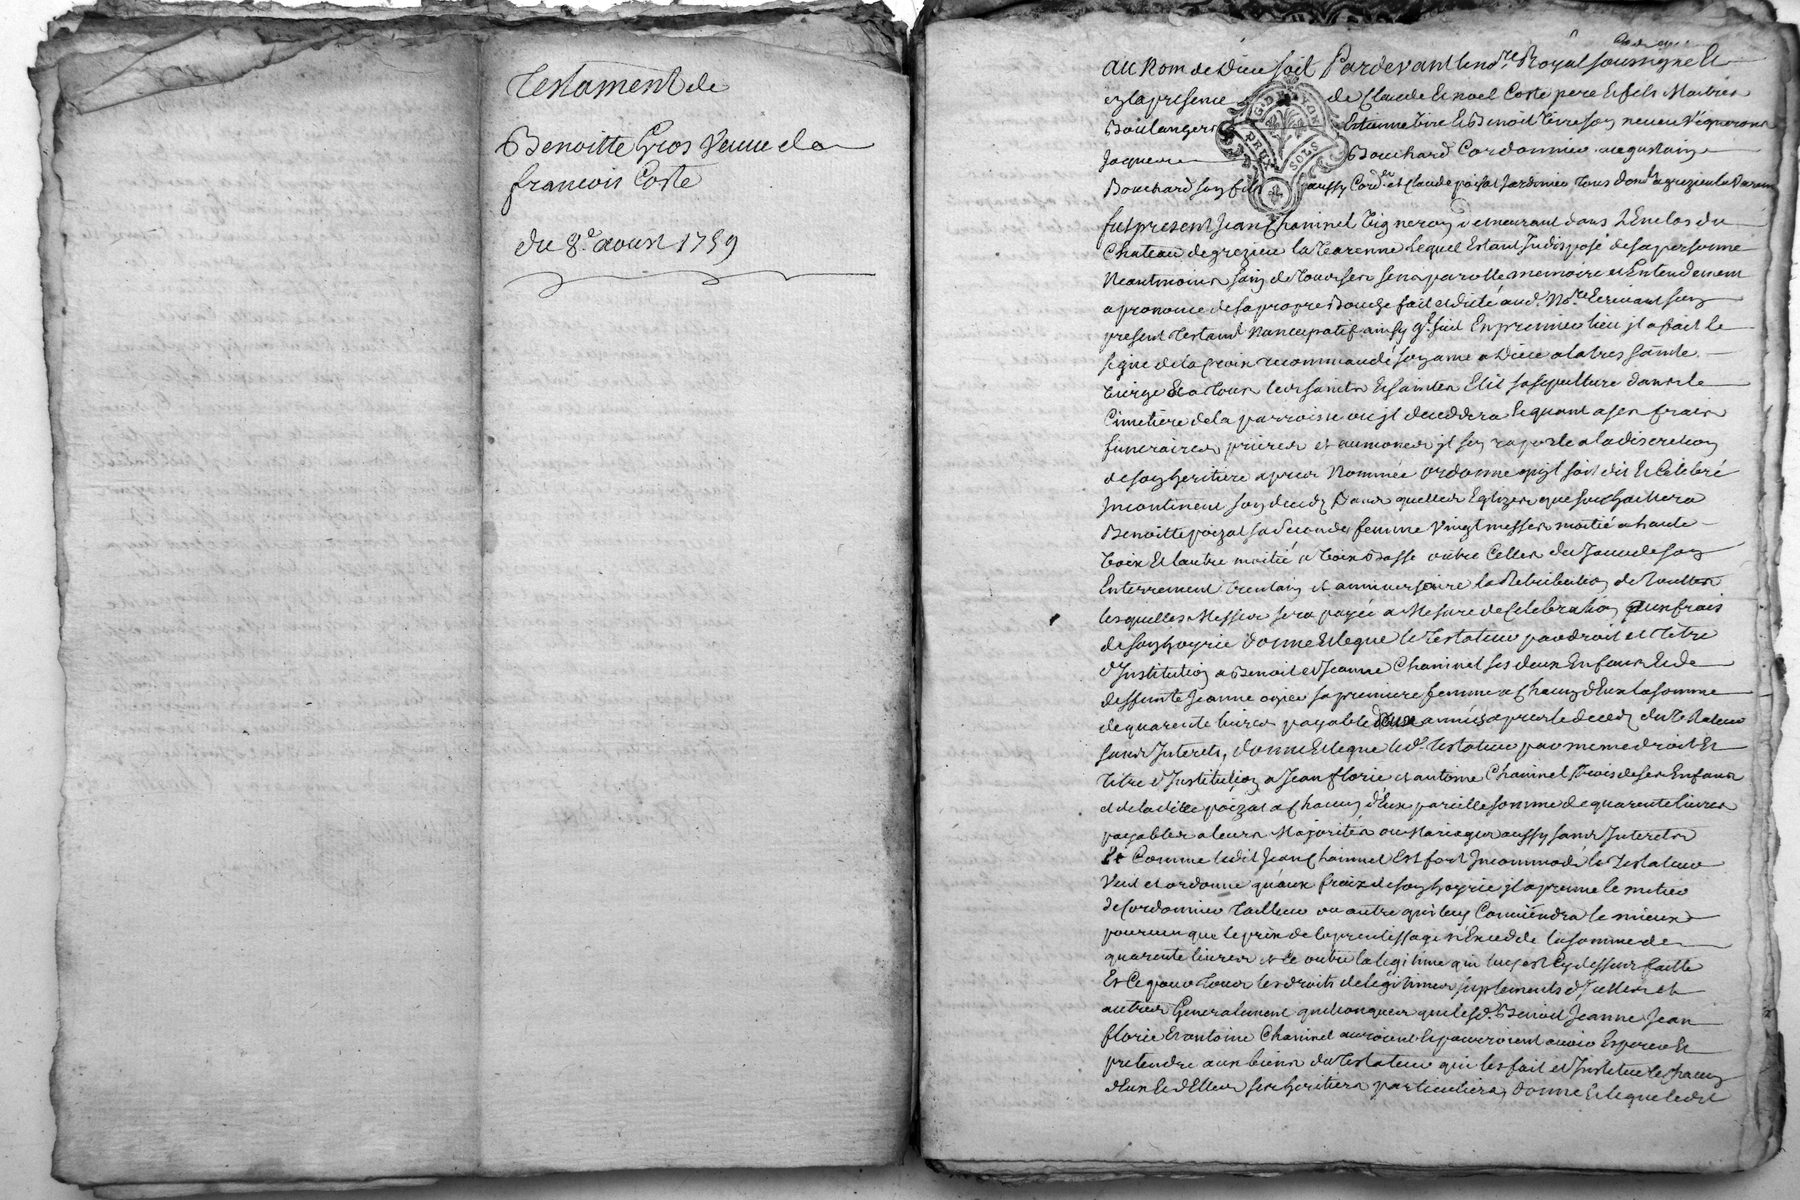 Testament de
Benoitte Gros Veuve de
francois Coste
du 8e. aoust 1759
au Nom de Dieu soit Pardevant le nore. Royal soussigné Et
en la presence de Claude Et noel Coste pere et fils Maitres
Boulangers Estienne Et Benoit son neveu Vignerons
Jaques Bouchard Cordonnier augustin
Bouchard son fils aussy Cordr. et Claude poizat Jardinier tous demt. a grezieu la Varenne
G. DE LYON DEUX SOLS
fut present Jean Chaninel Vigneron demeurant dans L'Enclos du
Chateau de grezieu la Varenne Lequel Estant Indisposé de sa personne
Neantmoins sain de tous ses sens parolle memoire et Entendement
a prononcé de sa propre Bouche fait et dicté aud. Nore. Ecrivant son
present testamt. Nuncupatif ainsy q.' suit En premier lieu jl a fait le
signe de la Croix recommandé son ame a Dieu a la tres sainte
Vierge Et a tous les saints Et saintes Elit sa sepulture dans le
Cimetiere de la parroisse ou jl decedera Et quant a ses frais
funeraires prieres et aumones jl s'en raporte a la discretion
de son heritiere apres Nommée ordonne qu'jl soit dit Et Celebré
Incontinent son deced Dans quelles Eglizes que souhaittera
Benoitte poizat sa seconde femme Vingt messes moitié a haute
Voix Et l'autre moitié a Voix Basse outre Celles du Jour de son
Enterrement trentain et anniversaire la Retribution de touttes
lesquelles Messes sera payée a Mesure de Celebration aux frais
de son hoyrie donne Et legue le Testateur par droit et titre
d'Institution a Benoit et Jeanne Chaninel ses deux Enfans Et de
deffunte Jeanne ogier sa premiere femme a Chacun d'Eux la somme
de quarente livres payable deux années apres le deced du Testateur
sans Interets, donne Et legue led. Testateur par meme droit Et
titre d'Institution a Jean florie et antoine Chaninel trois de ses Enfans
et de ladite poizat a Chacun d'Eux pareille somme de quarente livres
payables a leurs Majorités ou Mariages aussy sans Interets
Et Comme ledit Jean Chaninel Est fort Incommodé le Testateur
Veut et ordonne qu'aux fraix de son hoyrie jl aprenne le metier
de Cordonnier tailleur ou autre qui luy Conviendra le mieux
pourvu que le prix de l'aprentissage n'Excede la somme de
quarente livres et Ce outre la legitime qui luy est Cy dessus faitte
Et Ce pour tous les droits de legitimes suplements d'Icelles et
autres Generalement quelconques que lesd. Benoit Jeanne Jean
florie Et antoine Chaninel auroient Et pourroient avoir Esperer Et
pretendre aux biens du Testateur qui les fait et Institue Chacun
d'Eux Et d'Elles ses heritiers particuliers, donne Et legue ledit